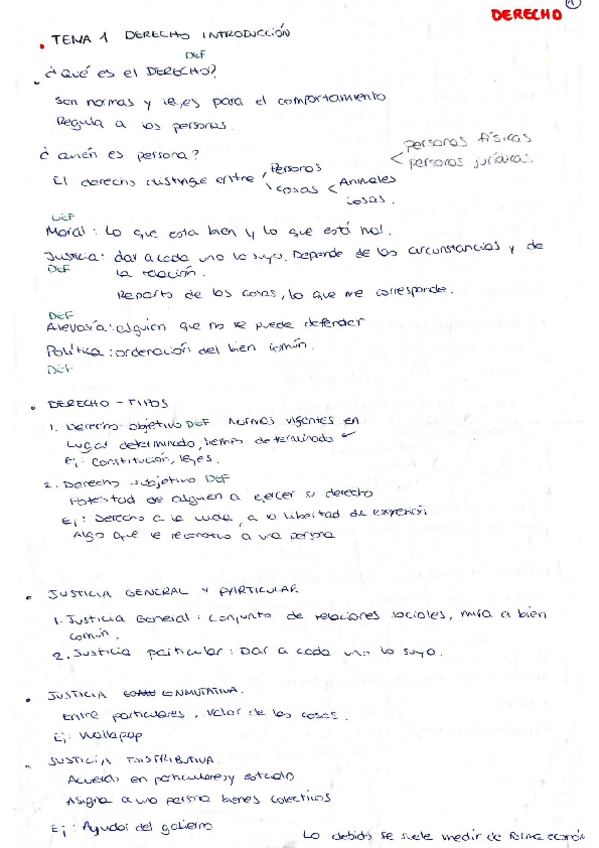 DERECHO 1
• TEMA 1 DERECHO INTRODUCCIÓN
DEF
• ¿Qué es el DERECHO?
Son normas y leyes para el comportamiento
Regula a las personas.
¿Quién es persona?
personas físicas
< personas jurídicas.
El derecho distingue entre Personas
cosas < Animales
cosas.
DEF
Moral: Lo que esta bien y lo que está no!.
Justicia: dar a cada uno lo suyo. Depende de las circunstancias y de
DEF la relación.
Reparto de las cosas, lo que me corresponde.
DEF
Alevosía: alguien que no se puede defender
Política: ordenación del bien común.
DEF
• DERECHO - TIPOS
1. Derecho objetivo DEF Normas vigentes en
Lugar determinado, tiempo determinado
Ej: Constitución, leyes.
2. Derecho subjetivo DEF
Potestad de alguien a ejercer su derecho
Ej: Derecho a la , a la libertad de expresión
Algo que le a una persona
• JUSTICIA GENERAL Y PARTICULAR.
1. Justicia General: conjunto de relaciones sociales, mira a bien
común.
2. Justicia particular: Dar a cada uno lo suyo.
• JUSTICIA CONMUTATIVA.
Entre particulares, valor de las cosas.
Ej: Wallapop
• JUSTICIA DISTRIBUTIVA.
Acuerdo en particulares y estado
Asigna a una persona bienes colectivos
Ej: Ayudas del gobierno
Lo debido se suele medir de forma